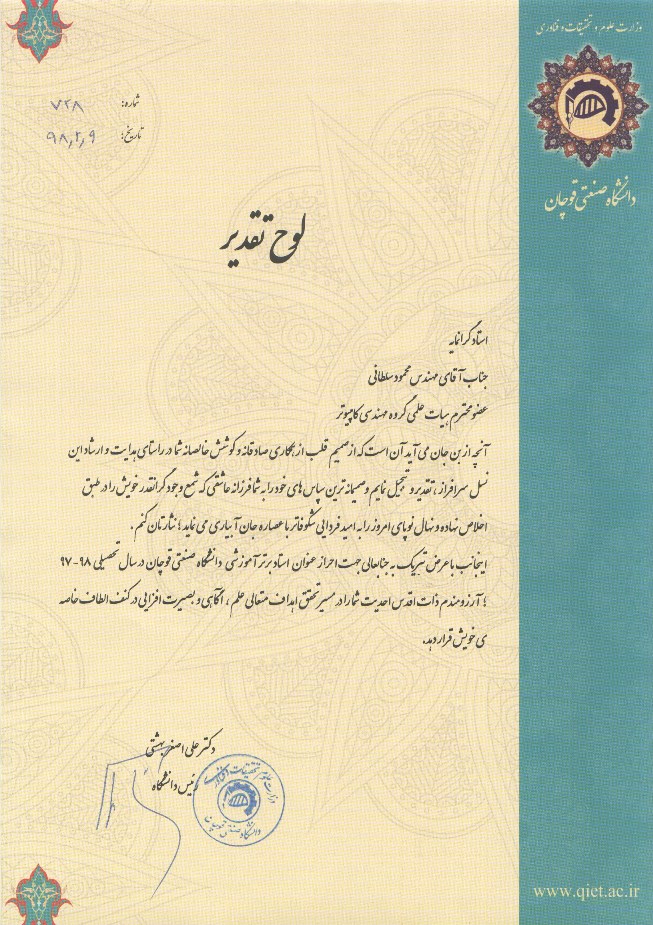 وزارت علوم و تحقیقات و فناوری
دانشگاه صنعتی قوچان
شماره: ۷۲۸
تاریخ: ۹۸,۲,۹
لوح تقدیر
استاد گرانمایه
جناب آقای مهندس محمود سلطانی
عضو محترم هیات علمی گروه مهندسی کامپیوتر
آنچه از بن جان می آید آن است که از صمیم قلب از همکاری صادقانه و کوشش خالصانه شما در راستای هدایت و ارشاد این
نسل سرافراز ، تقدیر و تجلیل نمایم و صمیمانه ترین سپاس های خود را به شما فرزانه عاشقی که شمع وجود گرانقدر خویش را در طبق
اخلاص نهاده و نهال نوپای امروز را به امید فردایی شکوفاتر با عصاره جان آبیاری می نماید ؛ نثارتان کنم .
اینجانب با عرض تبریک به جنابعالی جهت احراز عنوان استاد برتر آموزشی دانشگاه صنعتی قوچان در سال تحصیلی ۹۸-۹۷
؛ آرزومندم ذات اقدس احدیت شما را در مسیر تحقق اهداف متعالی علم ، آگاهی و بصیرت افزایی در کنف الطاف خاصه
ی خویش قرار دهد.
دکتر علی اصغر بهشتی
رئیس دانشگاه
وزارت علوم تحقیقات و فناوری
دانشگاه صنعتی قوچان
www.qiet.ac.ir